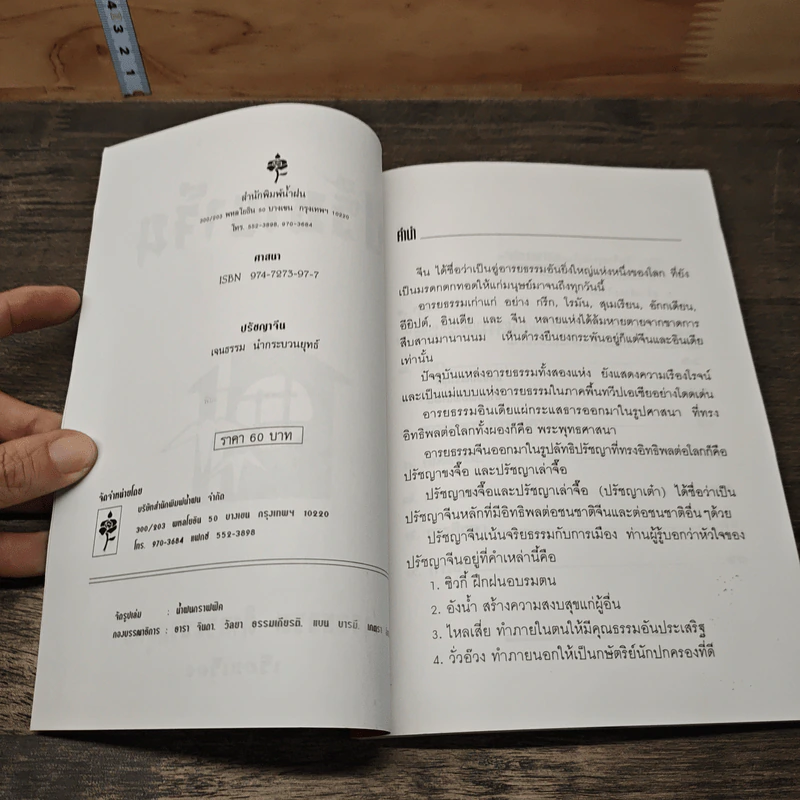 สำนักพิมพ์น้ำฝน
300/203 พหลโยธิน 50 บางเขน กรุงเทพฯ 10220
โทร. 552-3898, 970-3684
ศาสนา
ISBN 974-7273-97-7
ปรัชญาจีน
เจนธรรม นำกระบวนยุทธ์
ราคา 60 บาท
จัดจำหน่ายโดย
บริษัทสำนักพิมพ์น้ำฝน จำกัด
300/203 พหลโยธิน 50 บางเขน กรุงเทพฯ 10220
โทร. 970-3684 แฟกซ์ 552-3898
จัดรูปเล่ม : น้ำฝนกราฟฟิค
กองบรรณาธิการ : ธารา จินดา, วัลยา ธรรมเกียรติ, แบน บารมี,
คำนำ
จีน ได้ชื่อว่าเป็นอู่อารยธรรมอันยิ่งใหญ่แห่งหนึ่งของโลก ที่ยัง
เป็นมรดกตกทอดให้แก่มนุษย์มาจนถึงทุกวันนี้
อารยธรรมเก่าแก่ อย่าง กรีก, โรมัน, สุเมเรียน, อักกเดียน,
อียิปต์, อินเดีย และ จีน หลายแห่งได้ล้มหายตายจากขาดการ
สืบสานมานานนม เห็นดำรงยืนยงกระพันอยู่ก็แต่จีนและอินเดีย
เท่านั้น
ปัจจุบันแหล่งอารยธรรมทั้งสองแห่ง ยังแสดงความเรืองโรจน์
และเป็นแม่แบบแห่งอารยธรรมในภาคพื้นทวีปเอเซียอย่างโดดเด่น
อารยธรรมอินเดียแผ่กระแสธารออกมาในรูปศาสนา ที่ทรง
อิทธิพลต่อโลกทั้งผองก็คือ พระพุทธศาสนา
อารยธรรมจีนออกมาในรูปลัทธิปรัชญาที่ทรงอิทธิพลต่อโลกก็คือ
ปรัชญาขงจื๊อ และปรัชญาเล่าจื๊อ
ปรัชญาขงจื๊อและปรัชญาเล่าจื๊อ (ปรัชญาเต๋า) ได้ชื่อว่าเป็น
ปรัชญาจีนหลักที่มีอิทธิพลต่อชนชาติจีนและต่อชนชาติอื่นๆด้วย
ปรัชญาจีนเน้นจริยธรรมกับการเมือง ท่านผู้รู้บอกว่าหัวใจของ
ปรัชญาจีนอยู่ที่คำเหล่านี้คือ
1. ซิวกี้ ฝึกฝนอบรมตน
2. อังน้ำ สร้างความสงบสุขแก่ผู้อื่น
3. ไหลเสี่ย ทำภายในตนให้มีคุณธรรมอันประเสริฐ
4. วั่วอ๊วง ทำภายนอกให้เป็นกษัตริย์นักปกครองที่ดี
4
3
2
1